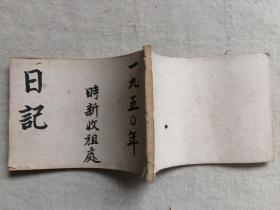 一九五〇年
時新收祖處
日記